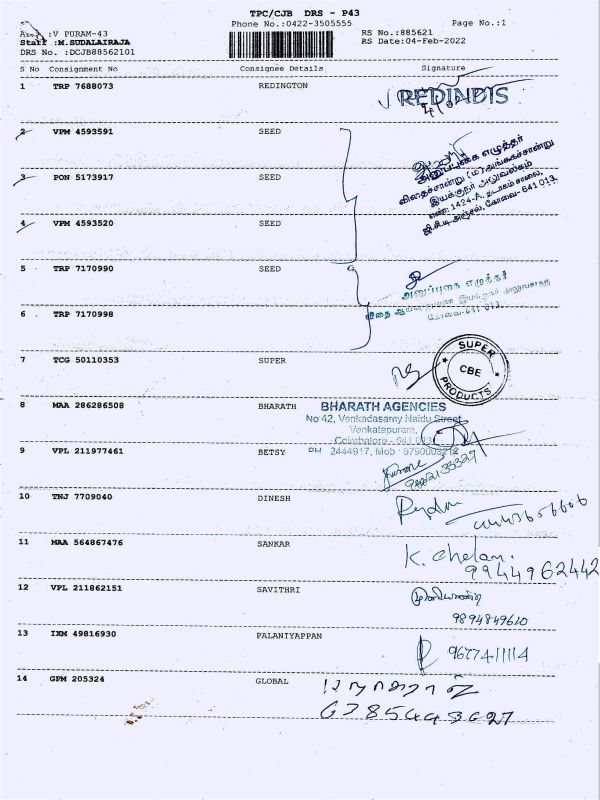 TPC/CJB DRS - P43
Phone No.:0422-3505555
Page No.:1
:V PURAM-43
RS No.:885621
Staff :M.SUDALAIRAJA
RS Date:04-Feb-2022
DRS No. :DCJB88562101
S No Consignment No Consignee Details Signature
1 TRP 7688073 REDINGTON
REDINDIS
2 VPM 4593591 SEED
அனுப்புகை எழுத்தர்
விதைச்சான்று (ம) அங்ககச்சான்று
3 PON 5173917 SEED
இயக்குநர் அலுவலகம்
எண்: 1424-A, தடாகம் சாலை,
ஜி.சி.டி அஞ்சல், கோவை- 641 013.
4 VPM 4593520 SEED
5 TRP 7170990 SEED
அனுப்புகை எழுத்தர்
6 TRP 7170998
கோவை-641 013
7 TCG 50110353 SUPER
SUPER
CBE
PRODUCTS
8 MAA 286286508 BHARATH
BHARATH AGENCIES
No 42, Venkadasamy Naidu Street
Venkatapuram,
Coimbatore - 641 023
9 VPL 211977461 BETSY
PH 2444917, Mob 9790003212
10 TNJ 7709040 DINESH
11 MAA 564867476 SANKAR
K. Chelan.
9944962442
12 VPL 211862151 SAVITHRI
முனியாண்டி
9894849610
13 IXM 49816930 PALANIYAPPAN
9677411114
14 GPM 205324 GLOBAL